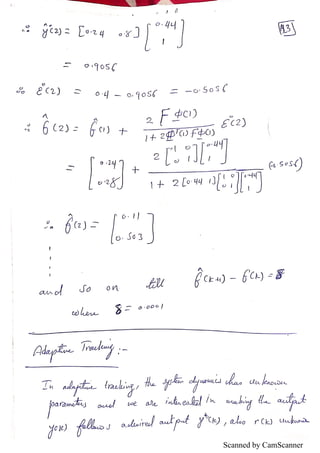 13
∴ ŷ°(2) = [0.24 0.8] [0.44
1]
= 0.9056
∴ ε°(2) = 0.4 - 0.9056 = -0.5056
∴ θ̂(2) = θ̂(1) + 2 F Φ(1) / 1+2Φᵀ(1)FΦ(1) ε°(2)
= [0.24
0.8] + 2 [1 0
0 1] [0.44
1] / 1 + 2 [0.44 1] [1 0
0 1] [0.44
1] (-0.5056)
∴ θ̂(2) = [0.11
0.503]
and so on till θ̂(k+1) - θ̂(k) = δ
where δ = 0.0001
Adaptive Tracking :-
In adaptive tracking, the system dynamics has unknown
parameters and we are interested in making the output
y(k) follows a desired output y*(k), also r(k) unknown
Scanned by CamScanner